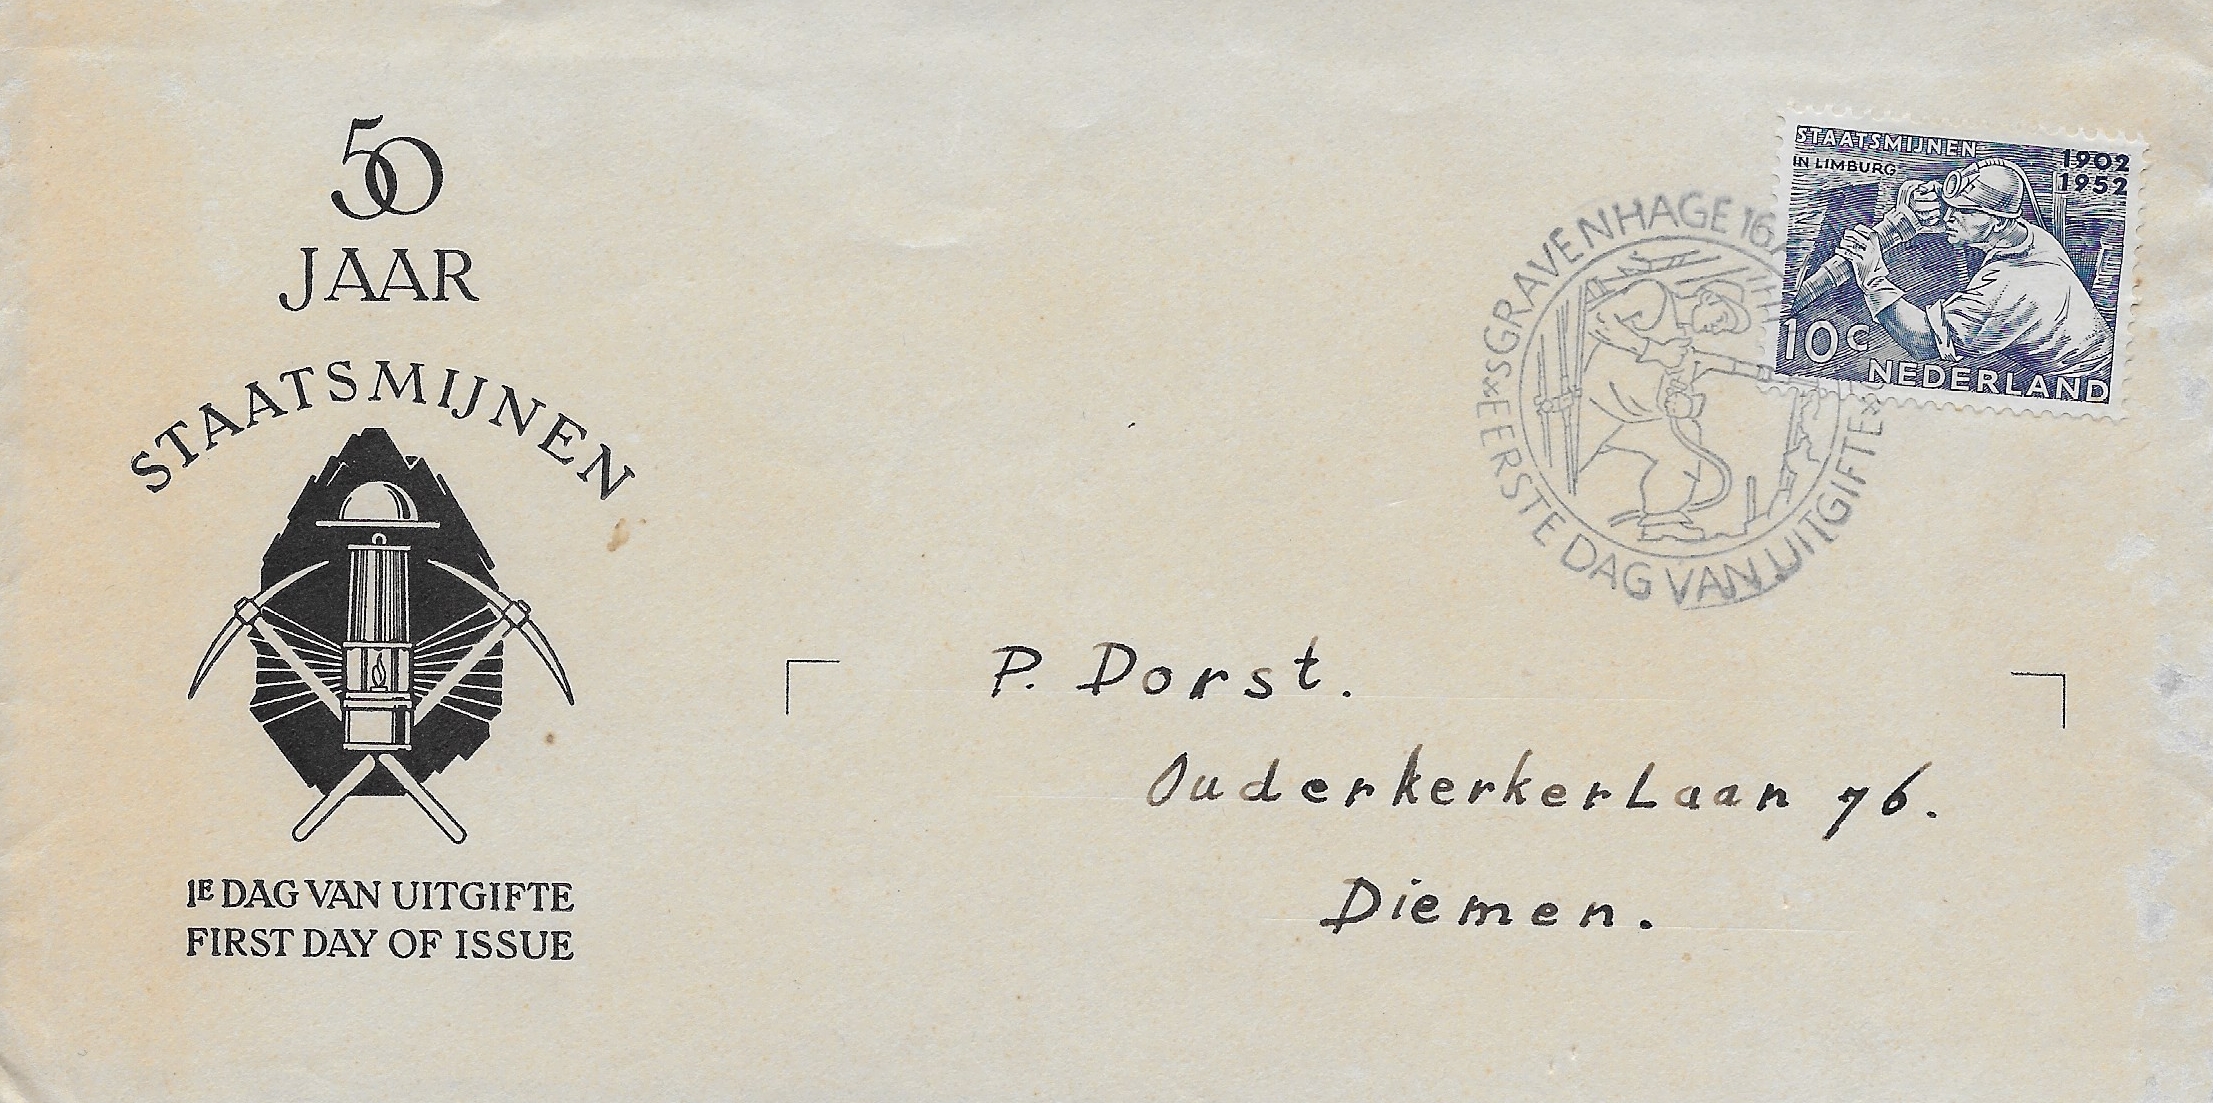 50
JAAR
STAATSMIJNEN
1E DAG VAN UITGIFTE
FIRST DAY OF ISSUE
SGRAVENHAGE 16
EERSTE DAG VAN UITGIFTE
STAATSMIJNEN
IN LIMBURG
1902
1952
10c
NEDERLAND
P. Dorst.
Ouderkerkerlaan 76.
Diemen.